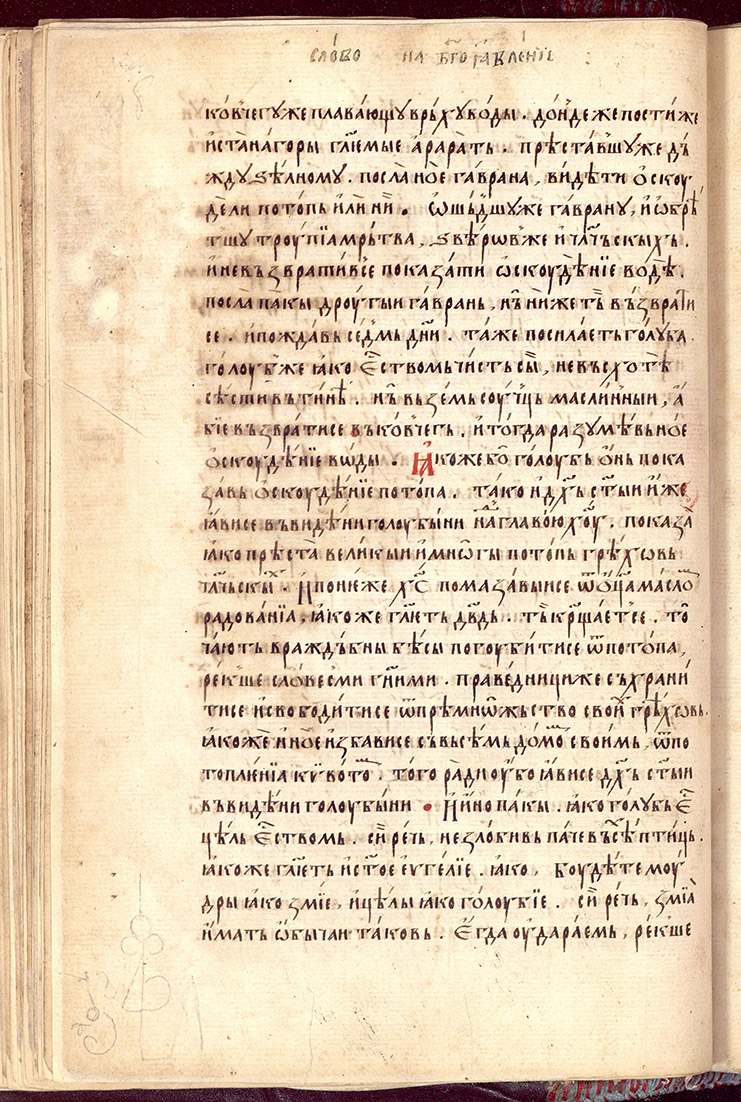 слово на бг҃оꙗвленїе
ковчегуже плавающу врьхуводы . дондеже постиже
истанагоры гл҃емые араратъ . прѣставшуже дъ
ждуѕѣлному . посла ное гаврана , видѣти оскоу
дели потопь илини . ѿшьдшуже гаврану , и ѡбрѣ
тшу троупїа мрьтва , ѕвѣрѡвже и чл҃чьскыхъ .
и невъзвративсе показати ѡскоудѣнїе водѣ .
посла пакы дроугыи гаврань , нь ниже тъ възврати
се . и пождавь седмь дн҃и . таже посилаетьголуба .
голоубже ꙗко ест҃вомь чисть сы , невъсхотѣ
сѣсти вътинѣ . нь вьземь соучць маслинныи , а
бїе възвратисе въковчегъ . и тогда разумѣвьное
оскоудѣнїе воды . Ꙗкоже бо голоубь онь пока
завь оскоудѣнїе потопа . тако и дх҃ь ст҃ыи иже
ꙗвисе въвидѣни голоубыни надглавоюхв҃ѹ . показа
ꙗко прѣста великыи и мнѡгы потопь грѣховь
чл҃чьскы . И понеже хс҃ помазавыисе ѿ оц҃а масло
радованїа , ꙗкоже гл҃еть дв҃дь . ть кр҃щаетсе . то
чають враждьбны бѣсы погоубитисе ѿ потопа ,
рекше словесми гн҃ими . праведнициже съхрани
тисе и свободитисе ѿ прѣмнѡжьство свои грѣховь .
ꙗкоже и ное избависе съвьсѣмь домо своимь , ѿ по
топленїа кивото . того ради оубо ꙗвисе дх҃ь ст҃ыи
въвидѣни голоубыни . И ино пакы . ꙗко голубь е
цѣль ест҃вомь . си речь , незлобивь паче въсѣ птиць .
ꙗкоже гл҃еть и ст҃ое еуг҃елїе . ꙗко , боудѣте моу
дры ꙗко змїе , и цѣлы ꙗко голоубїе . си речь , змїа
имать ѡбычаи таковь . Егда оудараемь , рекше